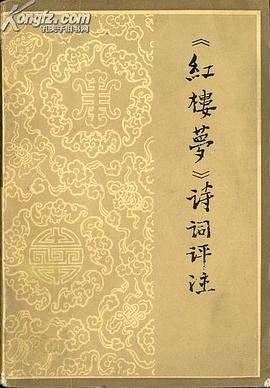 Kongfz.com
孔夫子旧书网
《紅樓夢》诗词评注